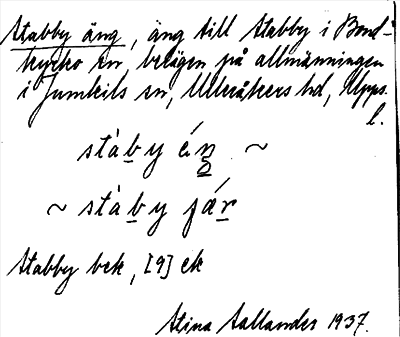 Stabby äng, äng till Stabby i Bond-
kyrko sn, belägen på allmänningen
i Jumkils sn, Ulleråkers hd, Upps.
l.
stàby éŋ ~
~ stàby jár
Stabby bek, [9] ek
Stina Sallander 1937.